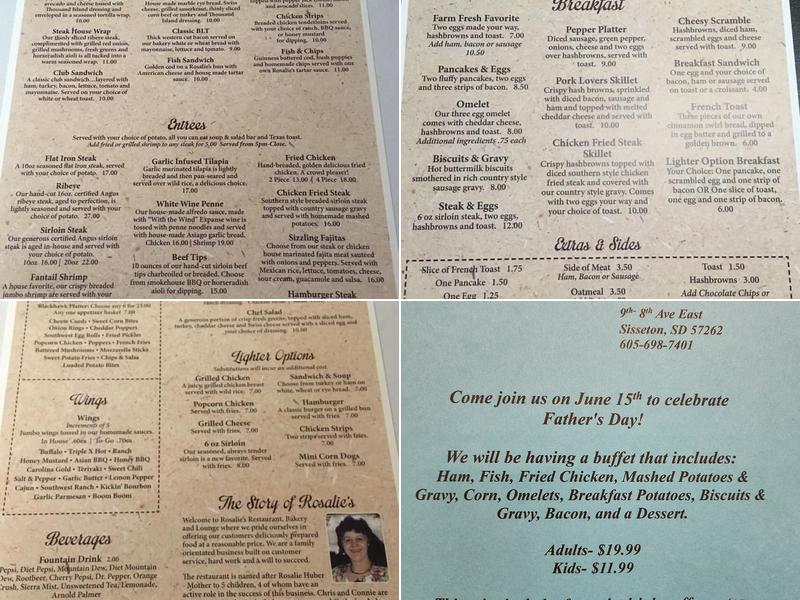 avocado and cheese tossed with
Thousand Island dressing and
enveloped in a seasoned tortilla wrap.
10.00
Steak House Wrap
Our thinly sliced ribeye steak,
complimented with grilled red onions,
grilled mushrooms, fresh greens and
horseradish aioli is all tucked into a
warm seasoned wrap. 11.00
Club Sandwich
A classic club sandwich...layered with
ham, turkey, bacon, lettuce, tomato and
mayonnaise. Served on your choice of
white or wheat toast. 10.00
House made marble rye bread, Swiss
cheese, grilled sauerkraut, thinly sliced
corn beef or turkey and Thousand
Island dressing. 10.00
Classic BLT
Thick western cut bacon served on
our bakery white or wheat bread with
mayonnaise, lettuce and tomato. 9.00
Fish Sandwich
Golden cod on a Rosalie's bun with
American cheese and house made tartar
sauce. 10.00
and avocado slices. 11.00
Chicken Strips
Breaded chicken tenderloins served
with your choice of ranch, BBQ sauce,
or honey mustard
for dipping. 10.00
Fish & Chips
Guinness battered cod, hush puppies
and homemade chips served with our
own Rosalie's tartar sauce. 11.00
Entrees
Served with your choice of potato, all you can eat soup & salad bar and Texas toast.
Add fried or grilled shrimp to any steak for 5.00 Served from 5pm-Close.
Flat Iron Steak
A 16oz seasoned flat iron steak, served
with your choice of potato. 17.00
Ribeye
Our hand-cut 16oz. certified Angus
ribeye steak, aged to perfection, is
lightly seasoned and served with your
choice of potato. 27.00
Sirloin Steak
Our generous certified Angus sirloin
steak is aged in-house and served with
your choice of potato.
10oz 16.00 | 20oz 22.00
Fantail Shrimp
A house favorite, our crispy breaded
jumbo shrimp are served with your
Garlic Infused Tilapia
Garlic marinated tilapia is lightly
breaded and then pan-seared and
served over wild rice, a delicious choice.
17.00
White Wine Penne
Our house-made alfredo sauce, made
with "With the Wind" Expanse wine is
tossed with penne noodles and served
with house-made Asiago garlic bread.
Chicken 16.00 | Shrimp 19.00
Beef Tips
10 ounces of our hand-cut sirloin beef
tips charbroiled or breaded. Choose
from smokehouse BBQ or horseradish
aioli for dipping. 15.00
Fried Chicken
Hand-breaded, golden delicious fried
chicken. A crowd pleaser!
2 Piece 13.00 | 4 Piece 18.00
Chicken Fried Steak
Southern style breaded sirloin steak
topped with country sausage gravy
and served with homemade mashed
potatoes. 16.00
Sizzling Fajitas
Choose from our steak or chicken
house marinated fajita meat sautéed
with onions and peppers. Served with
Mexican rice, lettuce, tomatoes, cheese,
sour cream, guacamole and salsa. 16.00
Hamburger Steak
Breakfast
Farm Fresh Favorite
Two eggs made your way,
hashbrowns and toast. 7.00
Add ham, bacon or sausage
10.50
Pancakes & Eggs
Two fluffy pancakes, two eggs
and three strips of bacon. 8.50
Omelet
Our three egg omelet
comes with cheddar cheese,
hashbrowns and toast. 8.00
Additional ingredients .75 each
Biscuits & Gravy
Hot fluffy buttermilk biscuits
smothered in rich country style
sausage gravy. 8.00
Steak & Eggs
6 oz sirloin steak, two eggs,
hashbrowns and toast. 12.00
Pepper Platter
Diced sausage, green pepper,
onions, cheese and two eggs
over hashbrowns, served with
toast. 9.00
Pork Lovers Skillet
Crispy hash browns, sprinkled
with diced bacon, sausage and
ham and topped with melted
cheddar cheese and served with
toast. 10.00
Chicken Fried Steak
Skillet
Crispy hashbrowns topped with
diced southern style chicken
fried steak and covered with
our country style gravy. Comes
with two eggs your way and
your choice of toast. 10.00
Cheesy Scramble
Hashbrowns, diced ham,
scrambled eggs and cheese
served with toast. 9.00
Breakfast Sandwich
One egg and your choice of
bacon, ham or sausage served
on toast or a croissant. 4.00
French Toast
Three pieces of our own
cinnamon swirl bread, dipped
in egg batter and grilled to a
golden brown. 6.00
Lighter Option Breakfast
Your Choice: One pancake, one
scrambled egg and one strip of
bacon OR One slice of toast,
one egg and one strip of bacon
6.00
Extras & Sides
Slice of French Toast 1.75
One Pancake 1.50
One Egg 1.25
Side of Meat 3.50
Ham, Bacon or Sausage
Oatmeal 3.50
Toast 1.50
Hashbrowns 3.00
Add Chocolate Chips or
Blackhawk Platter: Choose any 6 for 23.00
Any one appetizer basket 7.00
Cheese Curds • Sweet Corn Bites
Onion Rings • Cheddar Poppers
Southwest Egg Rolls • Fried Pickles
Popcorn Chicken • Poppers • French Fries
Battered Mushrooms • Mozzarella Sticks
Sweet Potato Fries • Chips & Salsa
Loaded Potato Bites
Wings
Wings
Increments of 5
Jumbo wings tossed in our homemade sauces.
In House .60ea | To-Go .70ea
Buffalo • Triple X Hot • Ranch
Honey Mustard • Asian BBQ • Honey BBQ
Carolina Gold • Teriyaki • Sweet Chili
Salt & Pepper • Garlic Butter • Lemon Pepper
Cajun • Southwest Ranch • Kickin' Bourbon
Garlic Parmesan • Boom Boom
Beverages
Fountain Drink 2.00
Pepsi, Diet Pepsi, Mountain Dew, Diet Mountain
Dew, Rootbeer, Cherry Pepsi, Dr. Pepper, Orange
Crush, Sierra Mist, Unsweetened Tea, Lemonade,
Arnold Palmer
ranch dressing.
Chef Salad
A generous portion of crisp fresh greens, topped with sliced ham,
turkey, cheddar cheese and Swiss cheese served with a sliced egg and
your choice of dressing. 10.00
Lighter Options
Substitutions will incur an additional cost.
Grilled Chicken
A juicy, grilled chicken breast
served with wild rice. 7.00
Popcorn Chicken
Served with fries. 7.00
Grilled Cheese
Served with fries. 7.00
6 oz Sirloin
Our seasoned, always tender
sirloin is a new favorite. Served
with fries. 8.00
Sandwich & Soup
Choose from turkey or ham on
white, wheat or rye bread. 7.00
Hamburger
A classic burger on a grilled bun
served with fries. 7.00
Chicken Strips
Two strips served with fries.
7.00
Mini Corn Dogs
Served with fries. 7.00
The Story of Rosalie's
Welcome to Rosalie's Restaurant, Bakery
and Lounge where we pride ourselves in
offering our customers deliciously prepared
food at a reasonable price. We are a family
orientated business built on customer
service, hard work and a will to succeed.
The restaurant is named after Rosalie Huber
- Mother to 5 children, 4 of whom have an
active role in the success of this business. Chris and Connie are
9th- 8th Ave East
Sisseton, SD 57262
605-698-7401
Come join us on June 15th to celebrate
Father's Day!
We will be having a buffet that includes:
Ham, Fish, Fried Chicken, Mashed Potatoes &
Gravy, Corn, Omelets, Breakfast Potatoes, Biscuits &
Gravy, Bacon, and a Dessert.
Adults- $19.99
Kids- $11.99